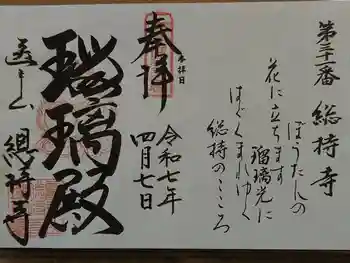 第三十一番 総持寺
ぼうたんの
花に立ちます
瑠璃光に
はぐくまれゆく
総持のこころ
奉拝
本拝日
令和七年
四月七日
瑠璃殿
總持寺